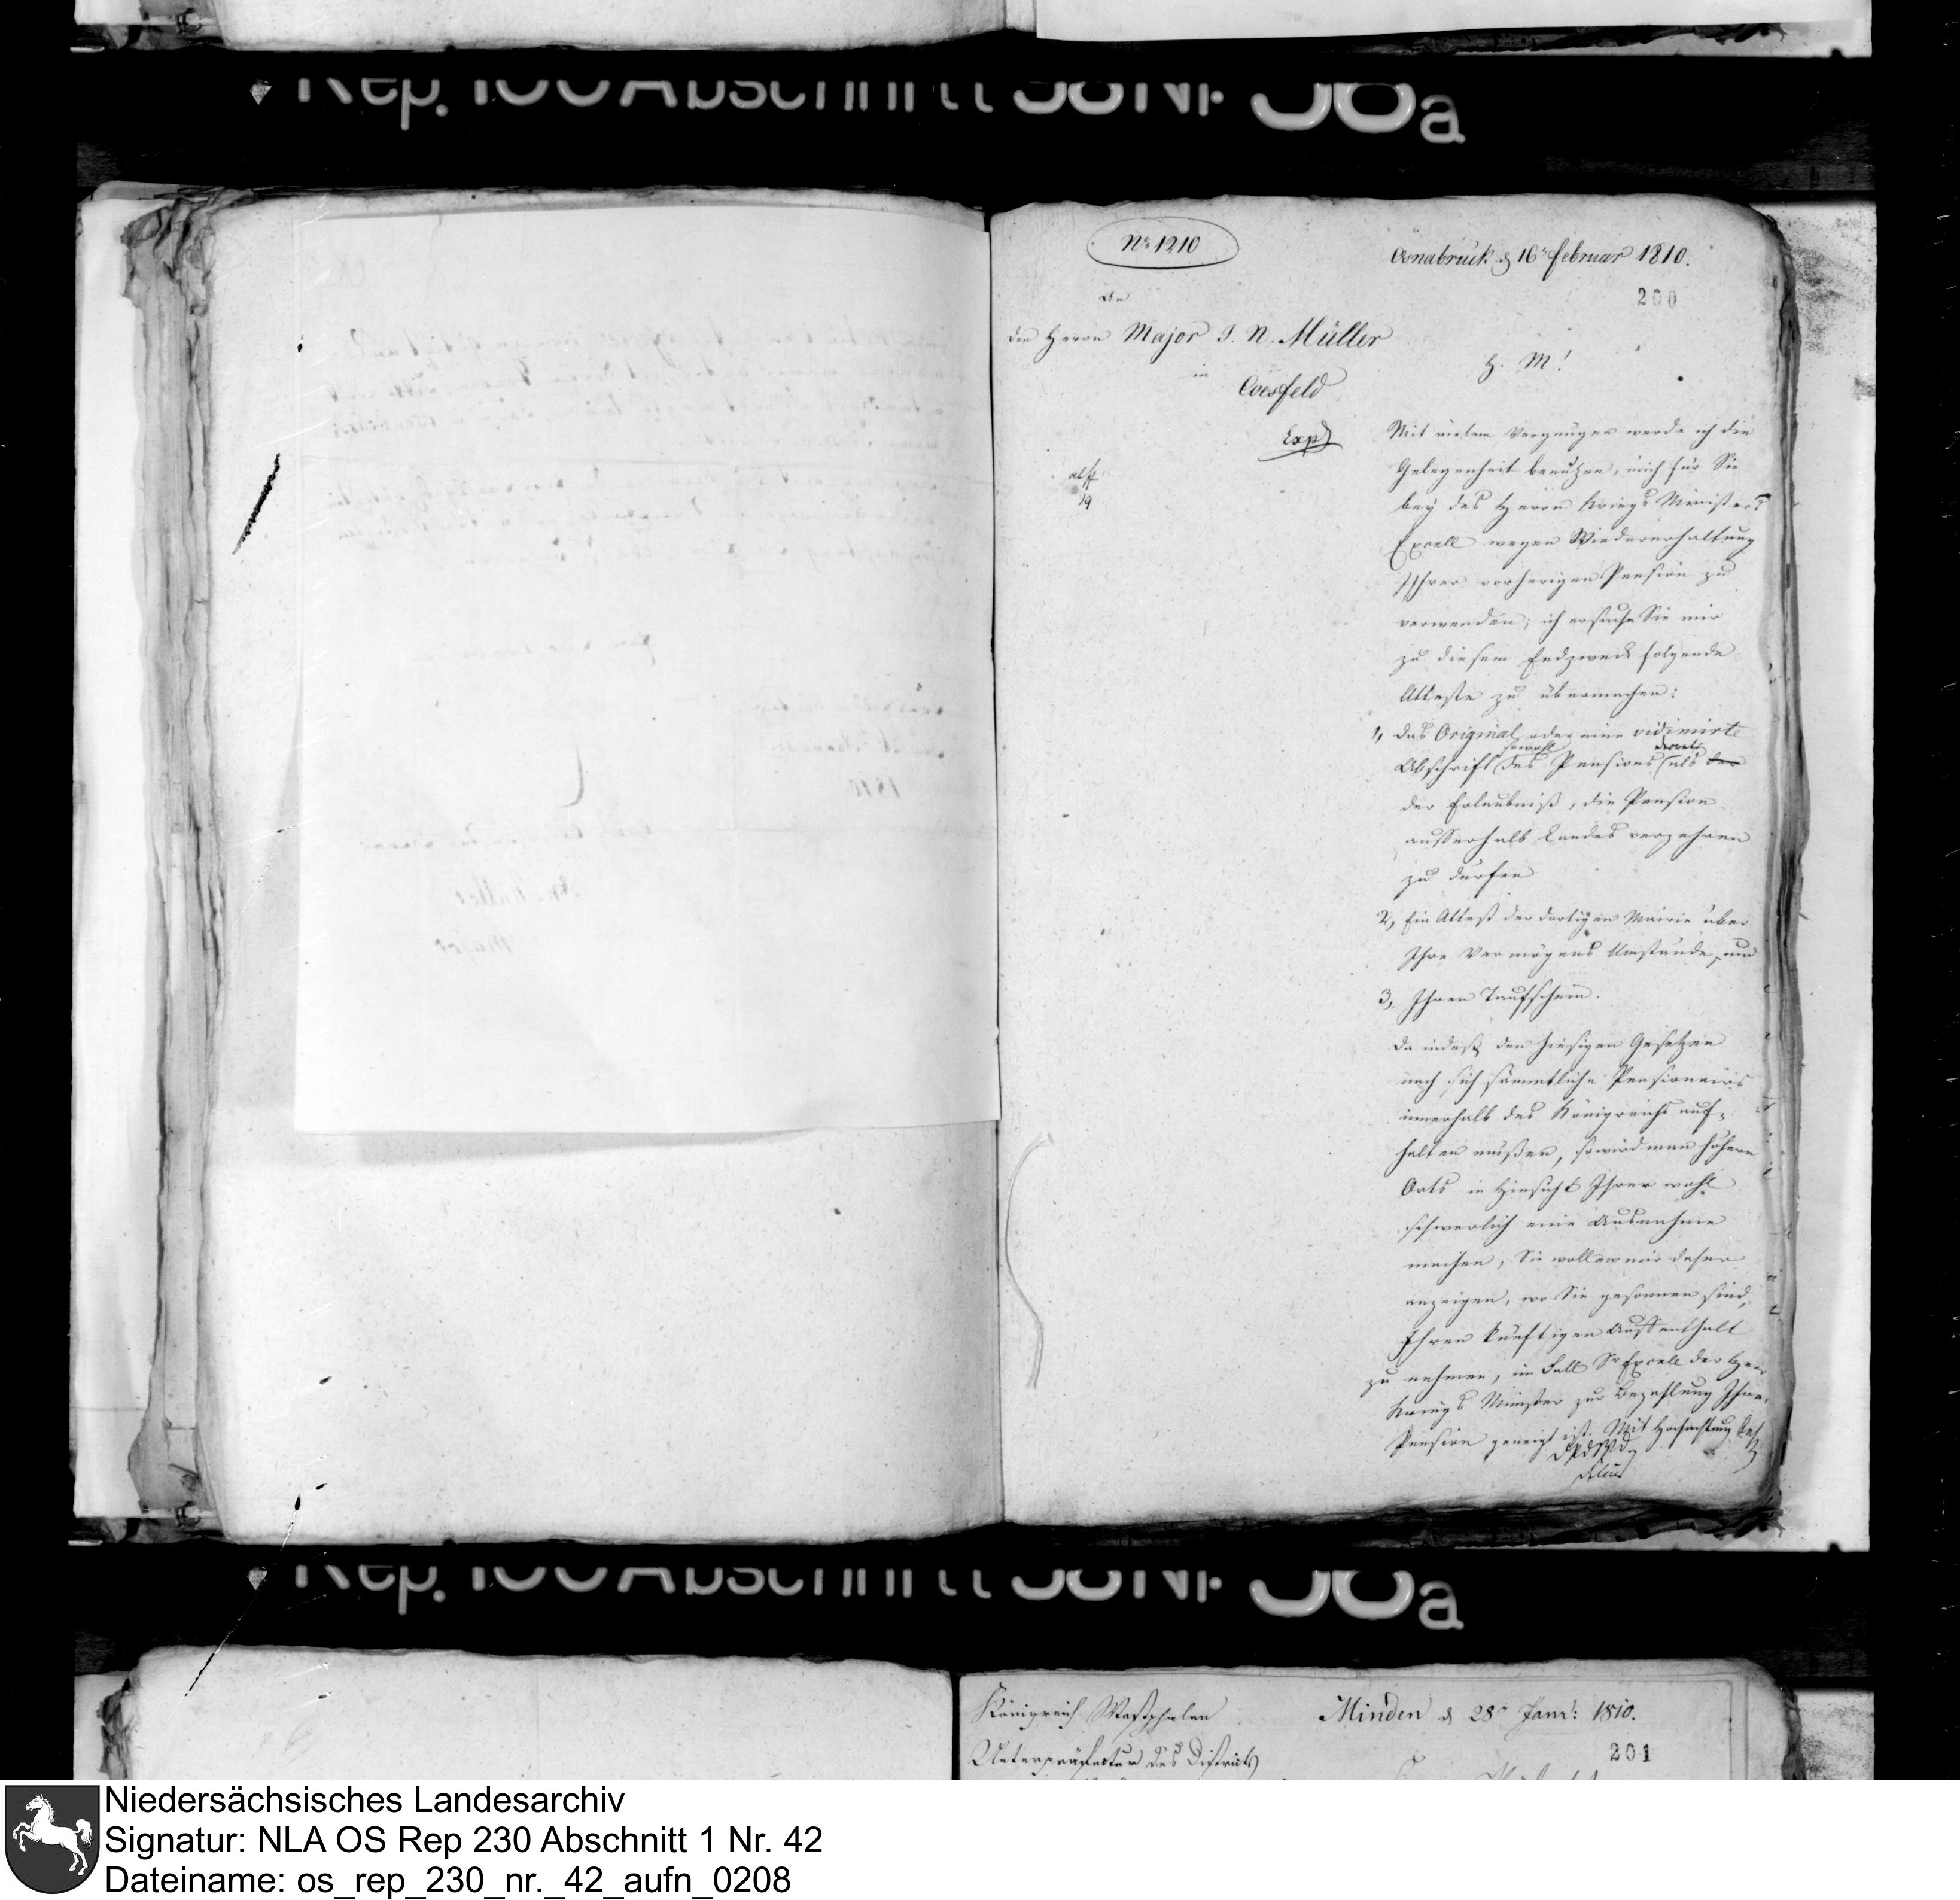 Rep. 100 Abschnitt 58 Nr 38a
No 1210
Osnabrück d 16t Februar 1810.
200
An
den Herrn Major J. N. Müller
in
Coesfeld
H. M!
Exp
Mit vielem Vergnügen werde ich die
Gelegenheit benutzen, mich für Sie
bey des Herrn Kriegs Ministers
Excell wegen Wiedererhaltung
Ihrer vorherigen Pension zu
verwenden; ich ersuche Sie mir
zu diesem Endzweck folgende
Atteste zu übermachen:
1, das Original oder eine vidimirte
sowohl decrets
Abschrift des Pensions als der
der Erlaubniß, die Pension
ausserhalb Landes verzehren
zu dürfen
2, Ein Attest der dortigen Mairie über
Ihre Vermögens Umstände, und
3, Ihren Taufschein.
Da indeß den hiesigen Gesetzen
nach sich sämmtliche Pensionairs
innerhalb des Königreichs auf-
halten müßen, so wird man höhern
Orts in Hinsicht Ihrer wohl
schwerlich eine Ausnahme
machen, Sie wollen mir daher
anzeigen, wo Sie gesonnen sind,
Ihren künftigen Auffenthalt
zu nehmen, im Fall Sr Excell der Herr
Kriegs Minister zur Bezahlung Ihrer
Pension geneigt ist. Mit Hochachtung
Rep. 100 Abschnitt 58 Nr 38a
Königreich Westphalen
Minden d 28t Janr: 1810.
Unterpräfectur des Districts
201
Niedersächsisches Landesarchiv
Signatur: NLA OS Rep 230 Abschnitt 1 Nr. 42
Dateiname: os_rep_230_nr._42_aufn_0208